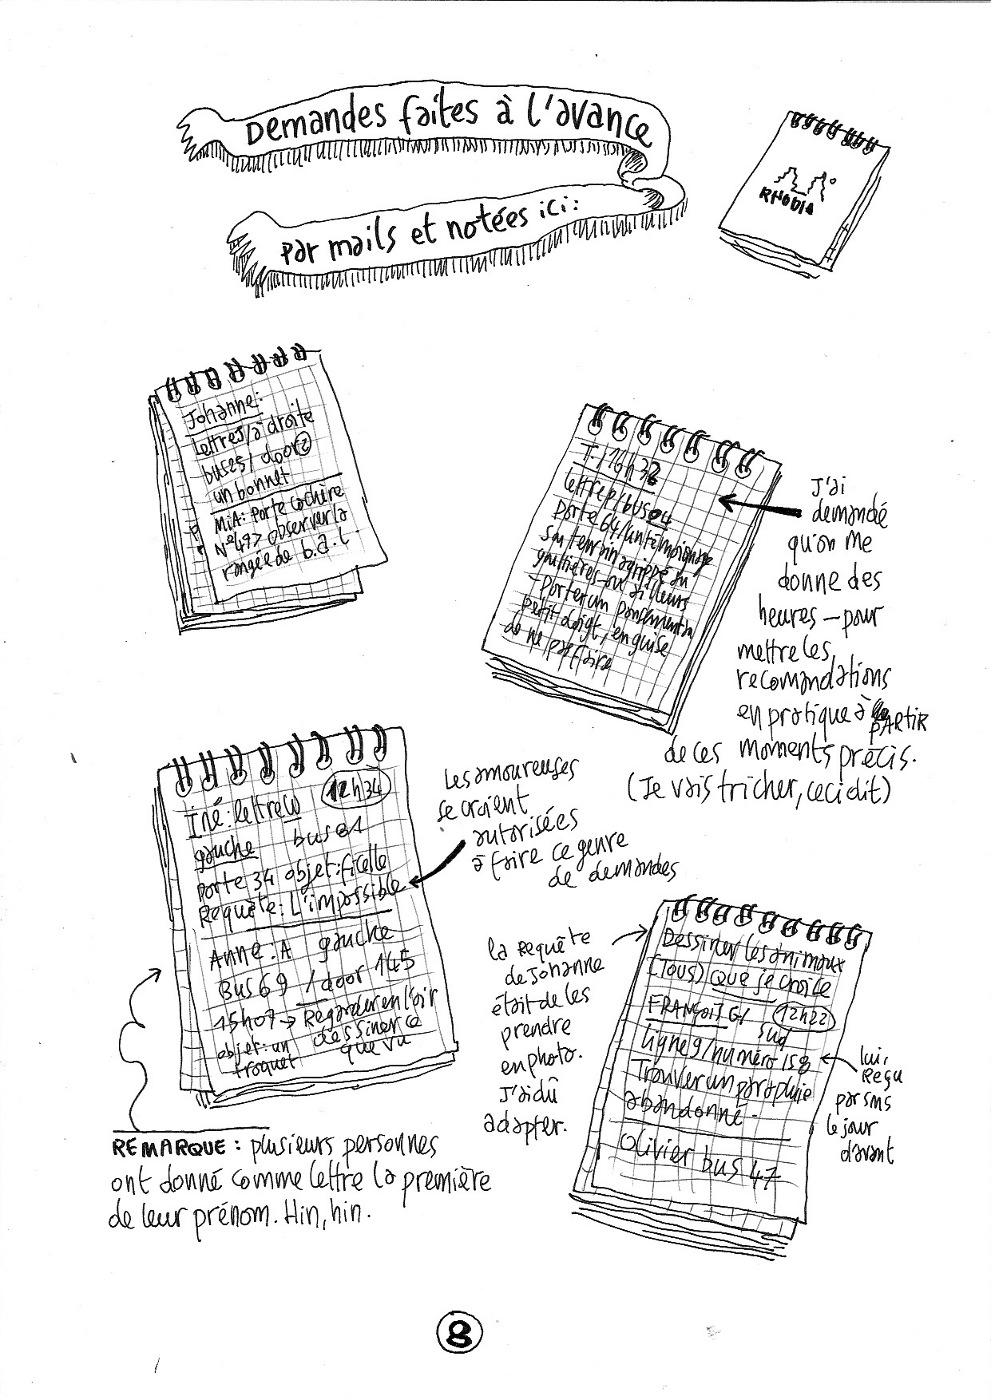 Demandes faites à l'avance
par mails et notées ici:
RHODIA
Johanne:
Lettre J/à droite
bus 25/ door 2
un bonnet
MiA: Porte cochère
N° 49> observer la
rangée de b.a.l
T/16h32
Lettre p/bus 04
Porte 64/un témoignage
sur terrain agrippé au
gouttières ou ailleurs
- Porter un pansement au
petit doigt, en guise
de ne pas faire
J'ai
demandé
qu'on me
donne des
heures – pour
mettre les
recomandations
en pratique à PARTIR
de ces moments précis.
(Je vais tricher, ceci dit)
Iné: lettre W 12h34
gauche bus 81
porte 34 objet: ficelle
Requête: L'impossible
Anne: A gauche
Bus 69 / door 145
15h07 → Regarder en l'air
objet: un dessiner ce
troquet que vu
Les amoureuses
se croient
autorisées
à faire ce genre
de demandes
la requête
de Johanne
était de les
prendre
en photo.
J'ai dû
adapter.
Dessiner les animaux
(TOUS) que je croise
FRANÇOIS G/ 12h22
sud
Ligne 9/numéro 158
Trouver un parapluie
abandonné.
Olivier bus 47
lui,
Reçu
par sms
le jour
d'avant
REMARQUE: plusieurs personnes
ont donné comme lettre la première
de leur prénom. Hin, hin.
8